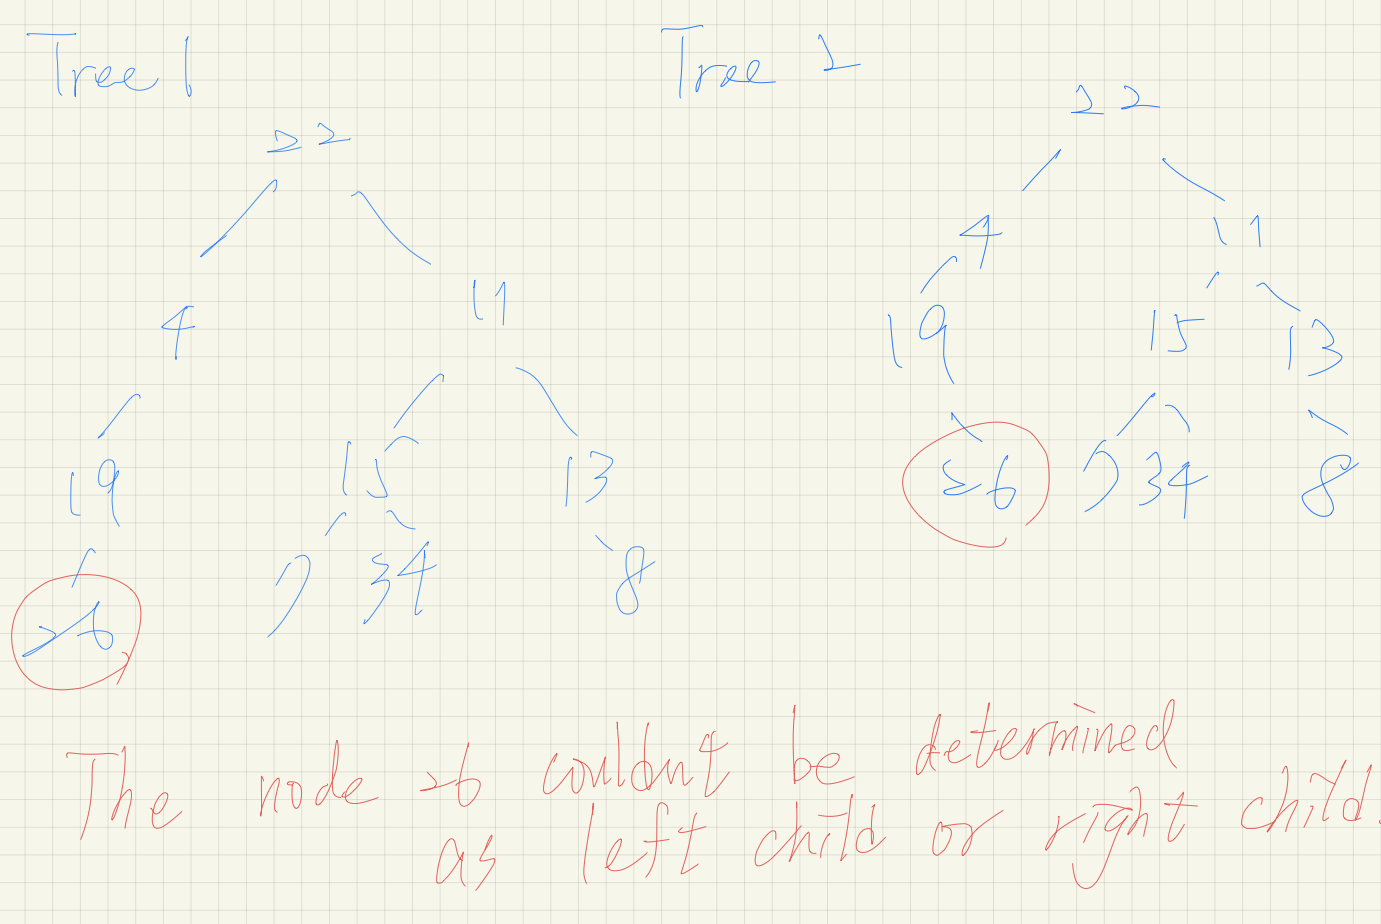 Tree 1
22
4 11
19 15 13
26 7 34 8
Tree 2
22
4 11
19 15 13
26 7 34 8
The node 26 couldn't be determined
as left child or right child.